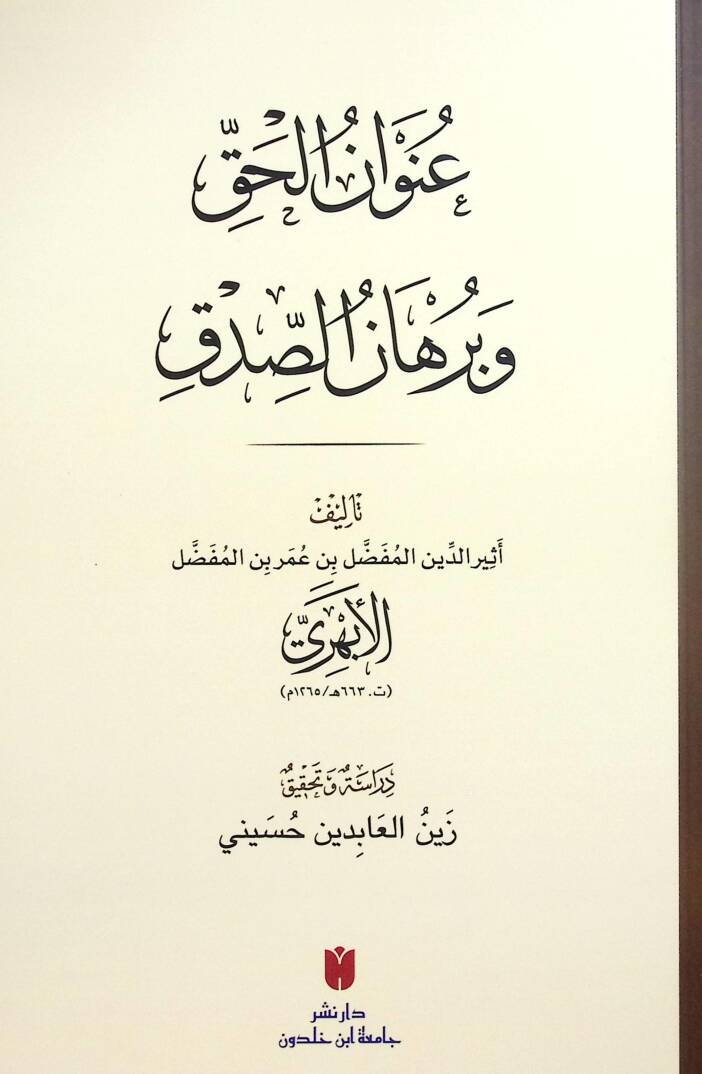 عُنْوَانُ الْحَقِّ
وَبُرْهَانُ الصِّدْقِ
تَأْلِيفُ
أَثِير الدِّين المُفَضَّل بِن عُمَر بِن المُفَضَّل
الأَبْهَرِيّ
(ت. ٦٦٣هـ/١٢٦٥م)
دِرَاسَةٌ وَتَحْقِيقٌ
زَينُ العَابِدِين حُسَيني
دار نشر
جامعة ابن خلدون